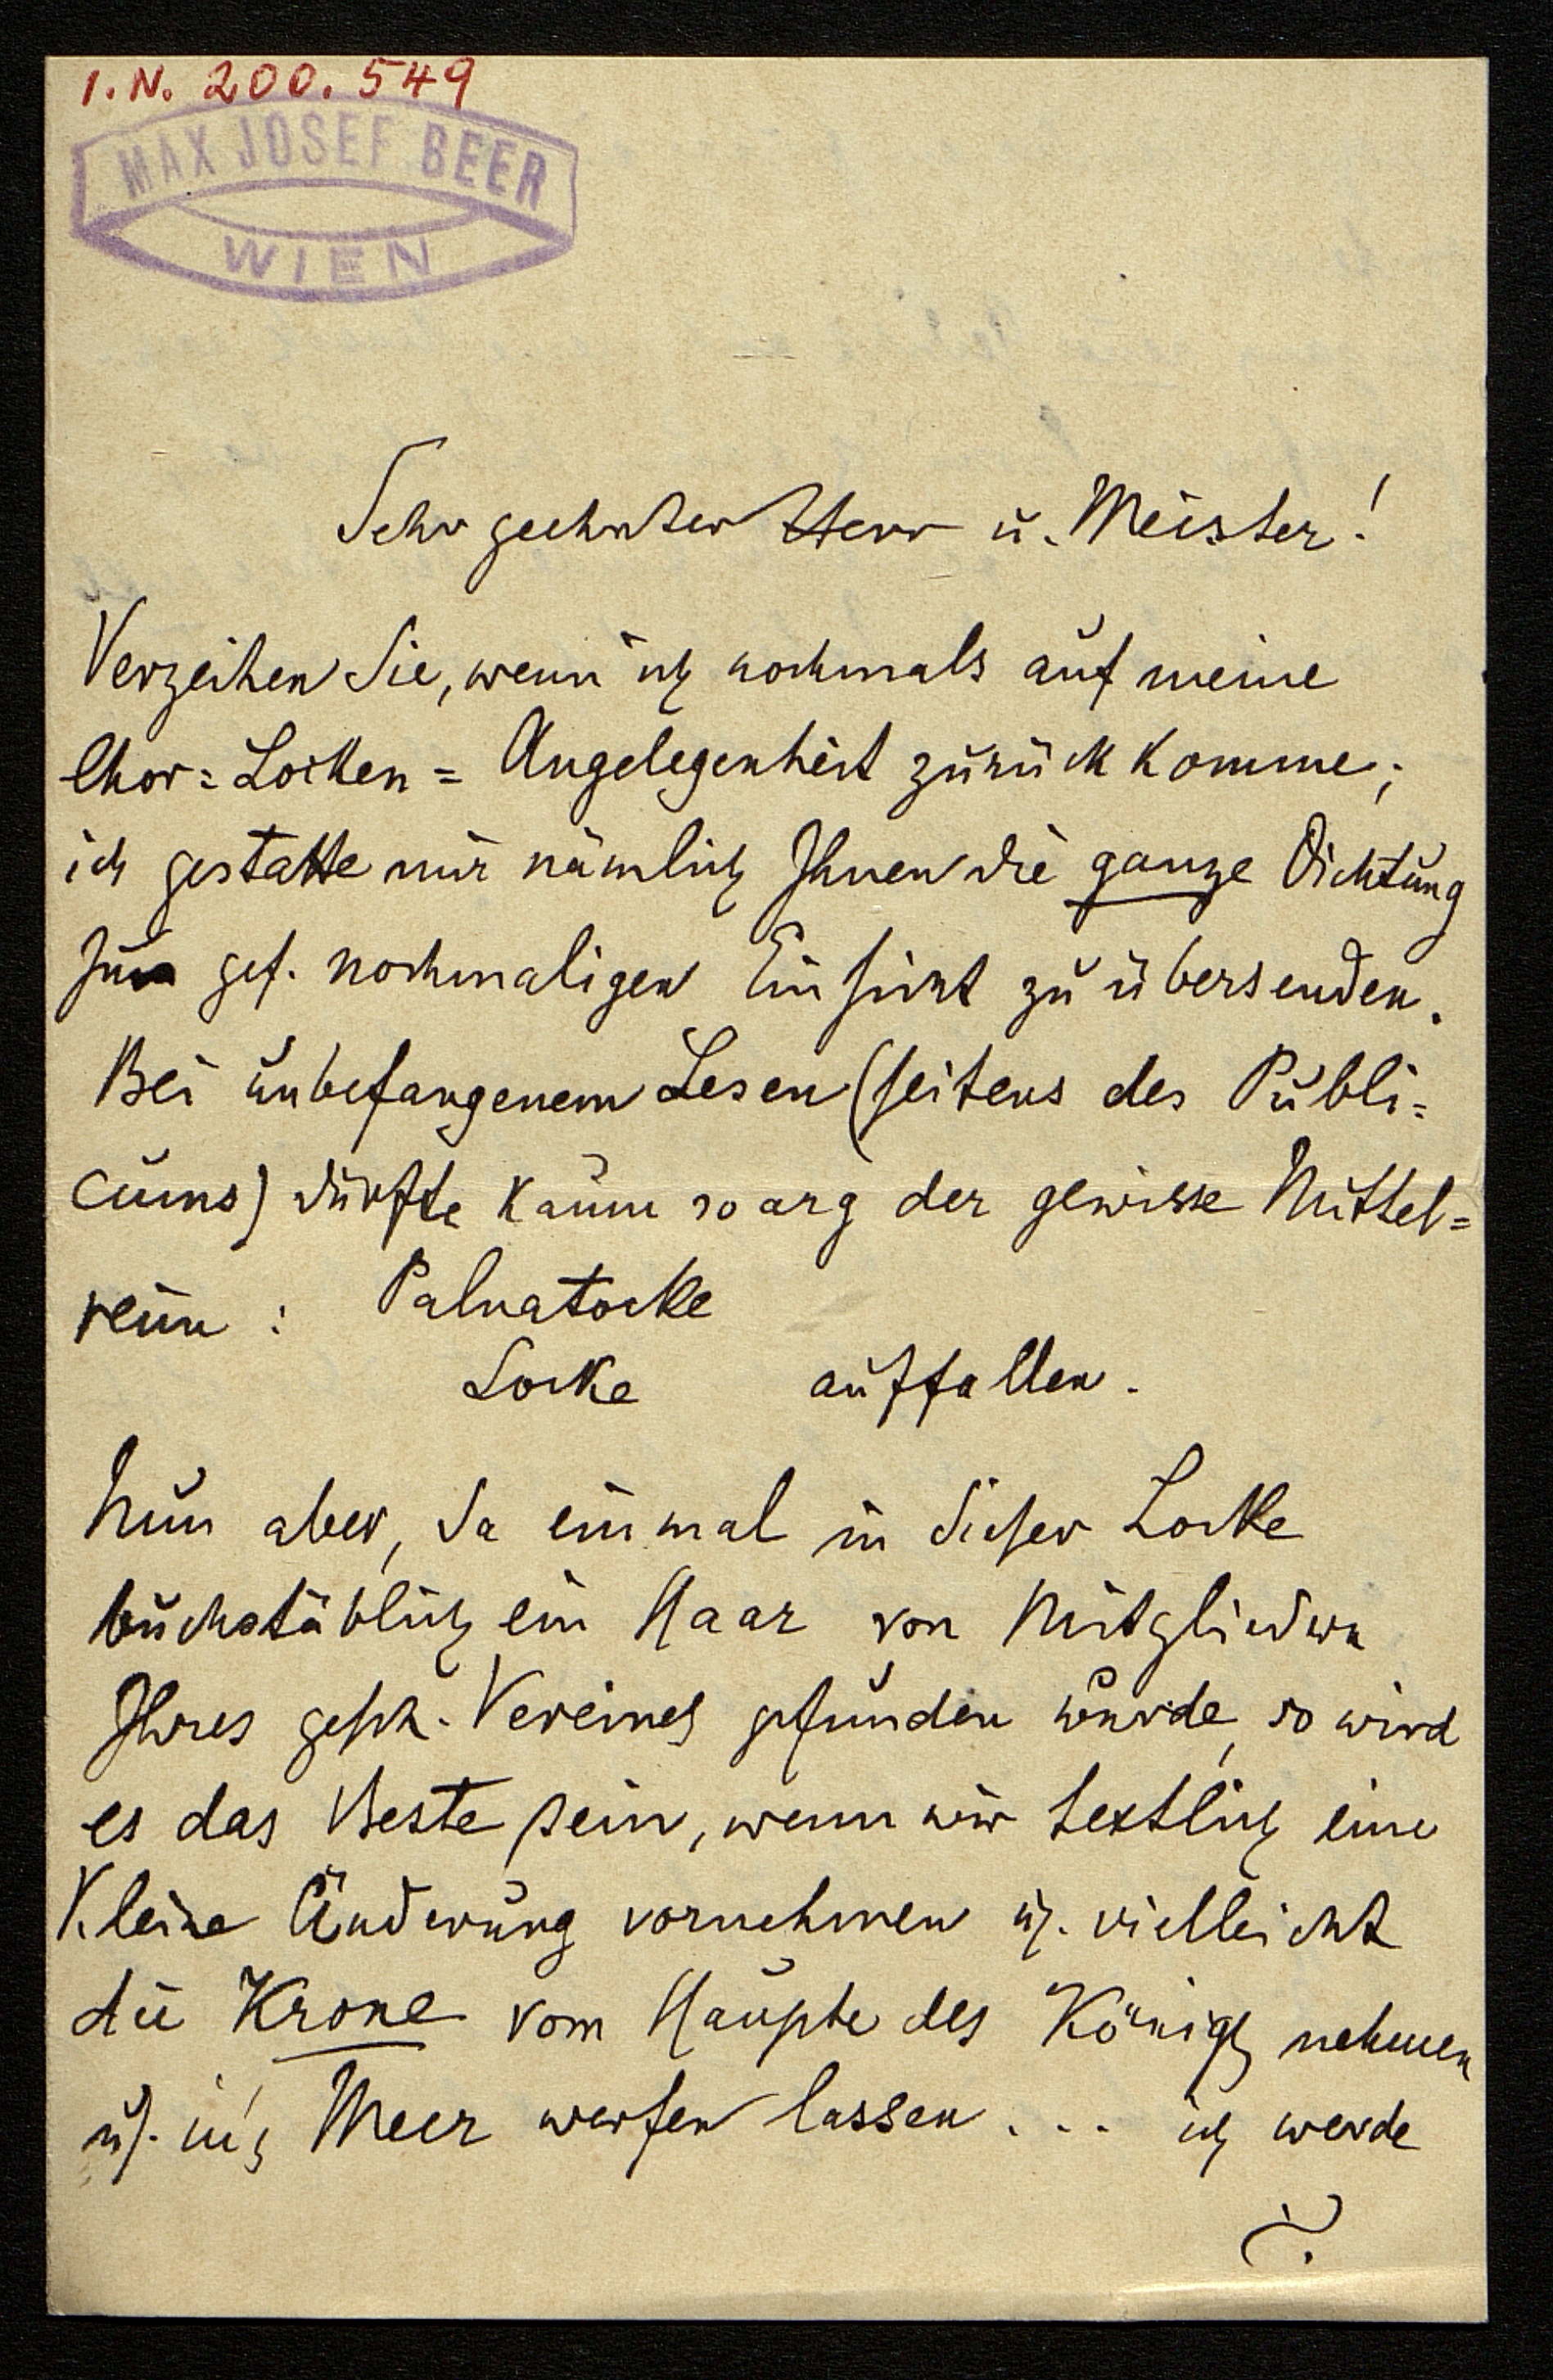 I.N. 200.549
MAX JOSEF BEER
WIEN
Sehr geehrter Herr u. Meister!
Verzeihen Sie, wenn ich nochmals auf meine
Chor=Locken=Angelegenheit zurück komme;
ich gestatte mir nämlich Ihnen die ganze Dichtung
zur gef. nochmaligen Einsicht zu übersenden.
Bei unbefangenem Lesen (seitens des Publi=
cums) dürfte kaum so arg der gewisse Mittel=
reim: Palnatocke
Locke auffallen.
Nun aber, da einmal in dieser Locke
buchstäblich ein Haar von Mitgliedern
Ihres gesch. Vereines gefunden wurde, so wird
es das Beste sein, wenn wir textlich eine
kleine Änderung vornehmen u. vielleicht
die Krone vom Haupte des Königs nehmen
u. in's Meer werfen lassen ... ich werde